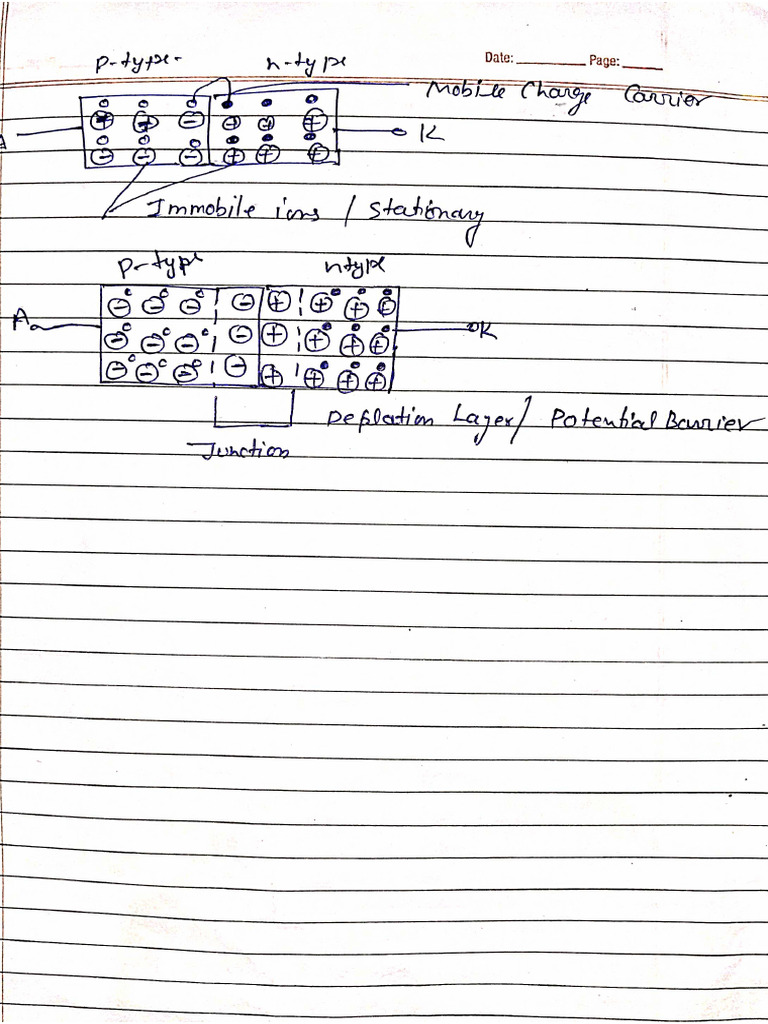 Date: ________ Page: _____
p-type- n-type
Mobile Charge Carrier
K
Immobile ions / Stationary
p-type ntype
A
K
Deplation Layer/ Potential Barrier
Junction